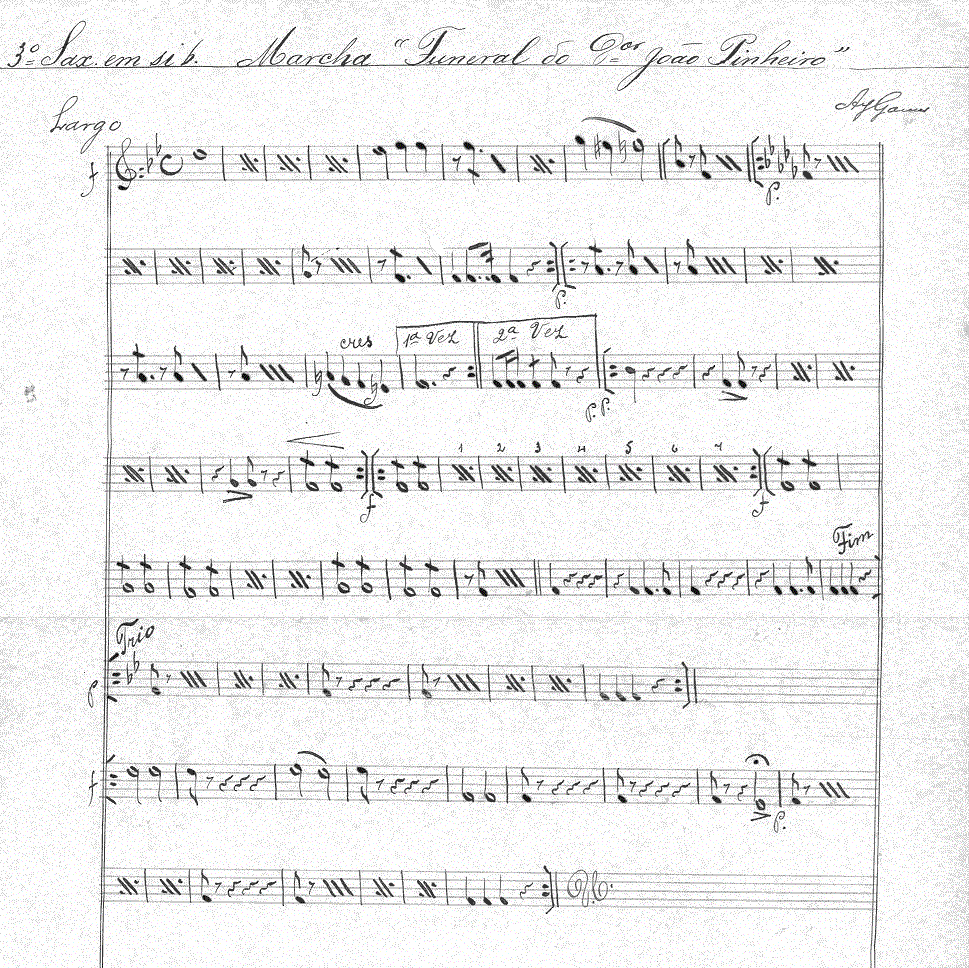 3º Sax. em si b. Marcha "Funeral do Dor João Pinheiro"
Largo
f
p.
p.
cres 1ª Vez 2ª Vez
p.p.
1 2 3 4 5 6 7
f f
Fim
Trio
p
f
p.